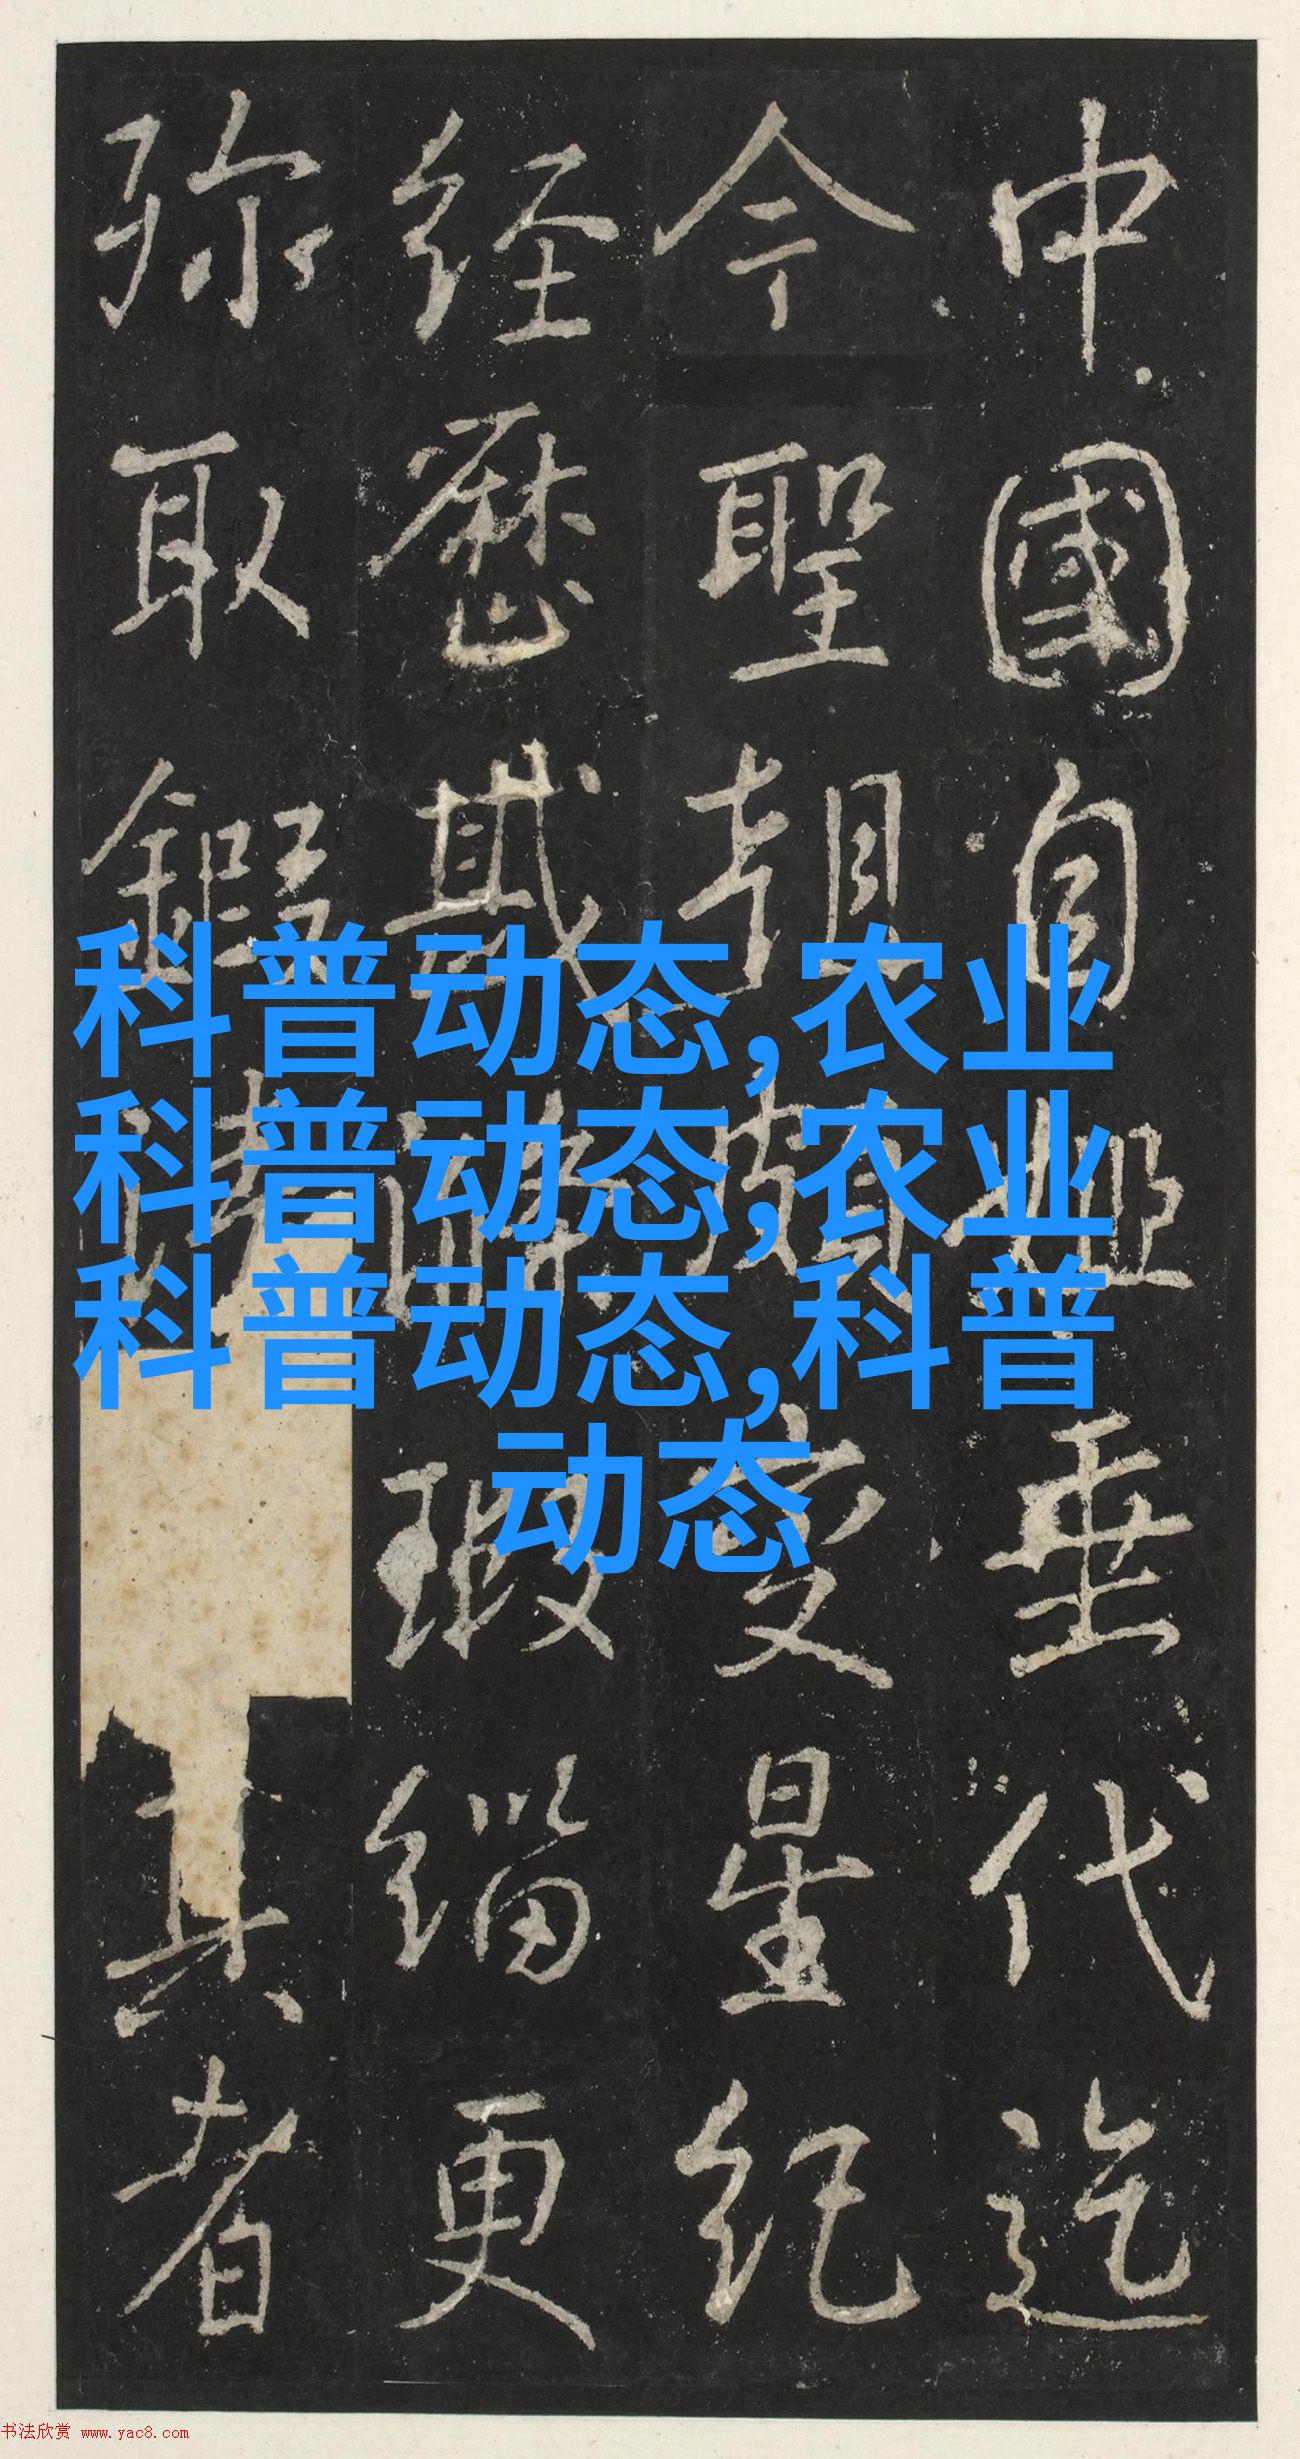 中國自姬垂代迄
今聖朝变星紀
经歷戡瑕緇更
弥取鍜者
科普动态,农业
科普动态,农业
科普动态,科普
动态
书法欣赏 www.yac8.com